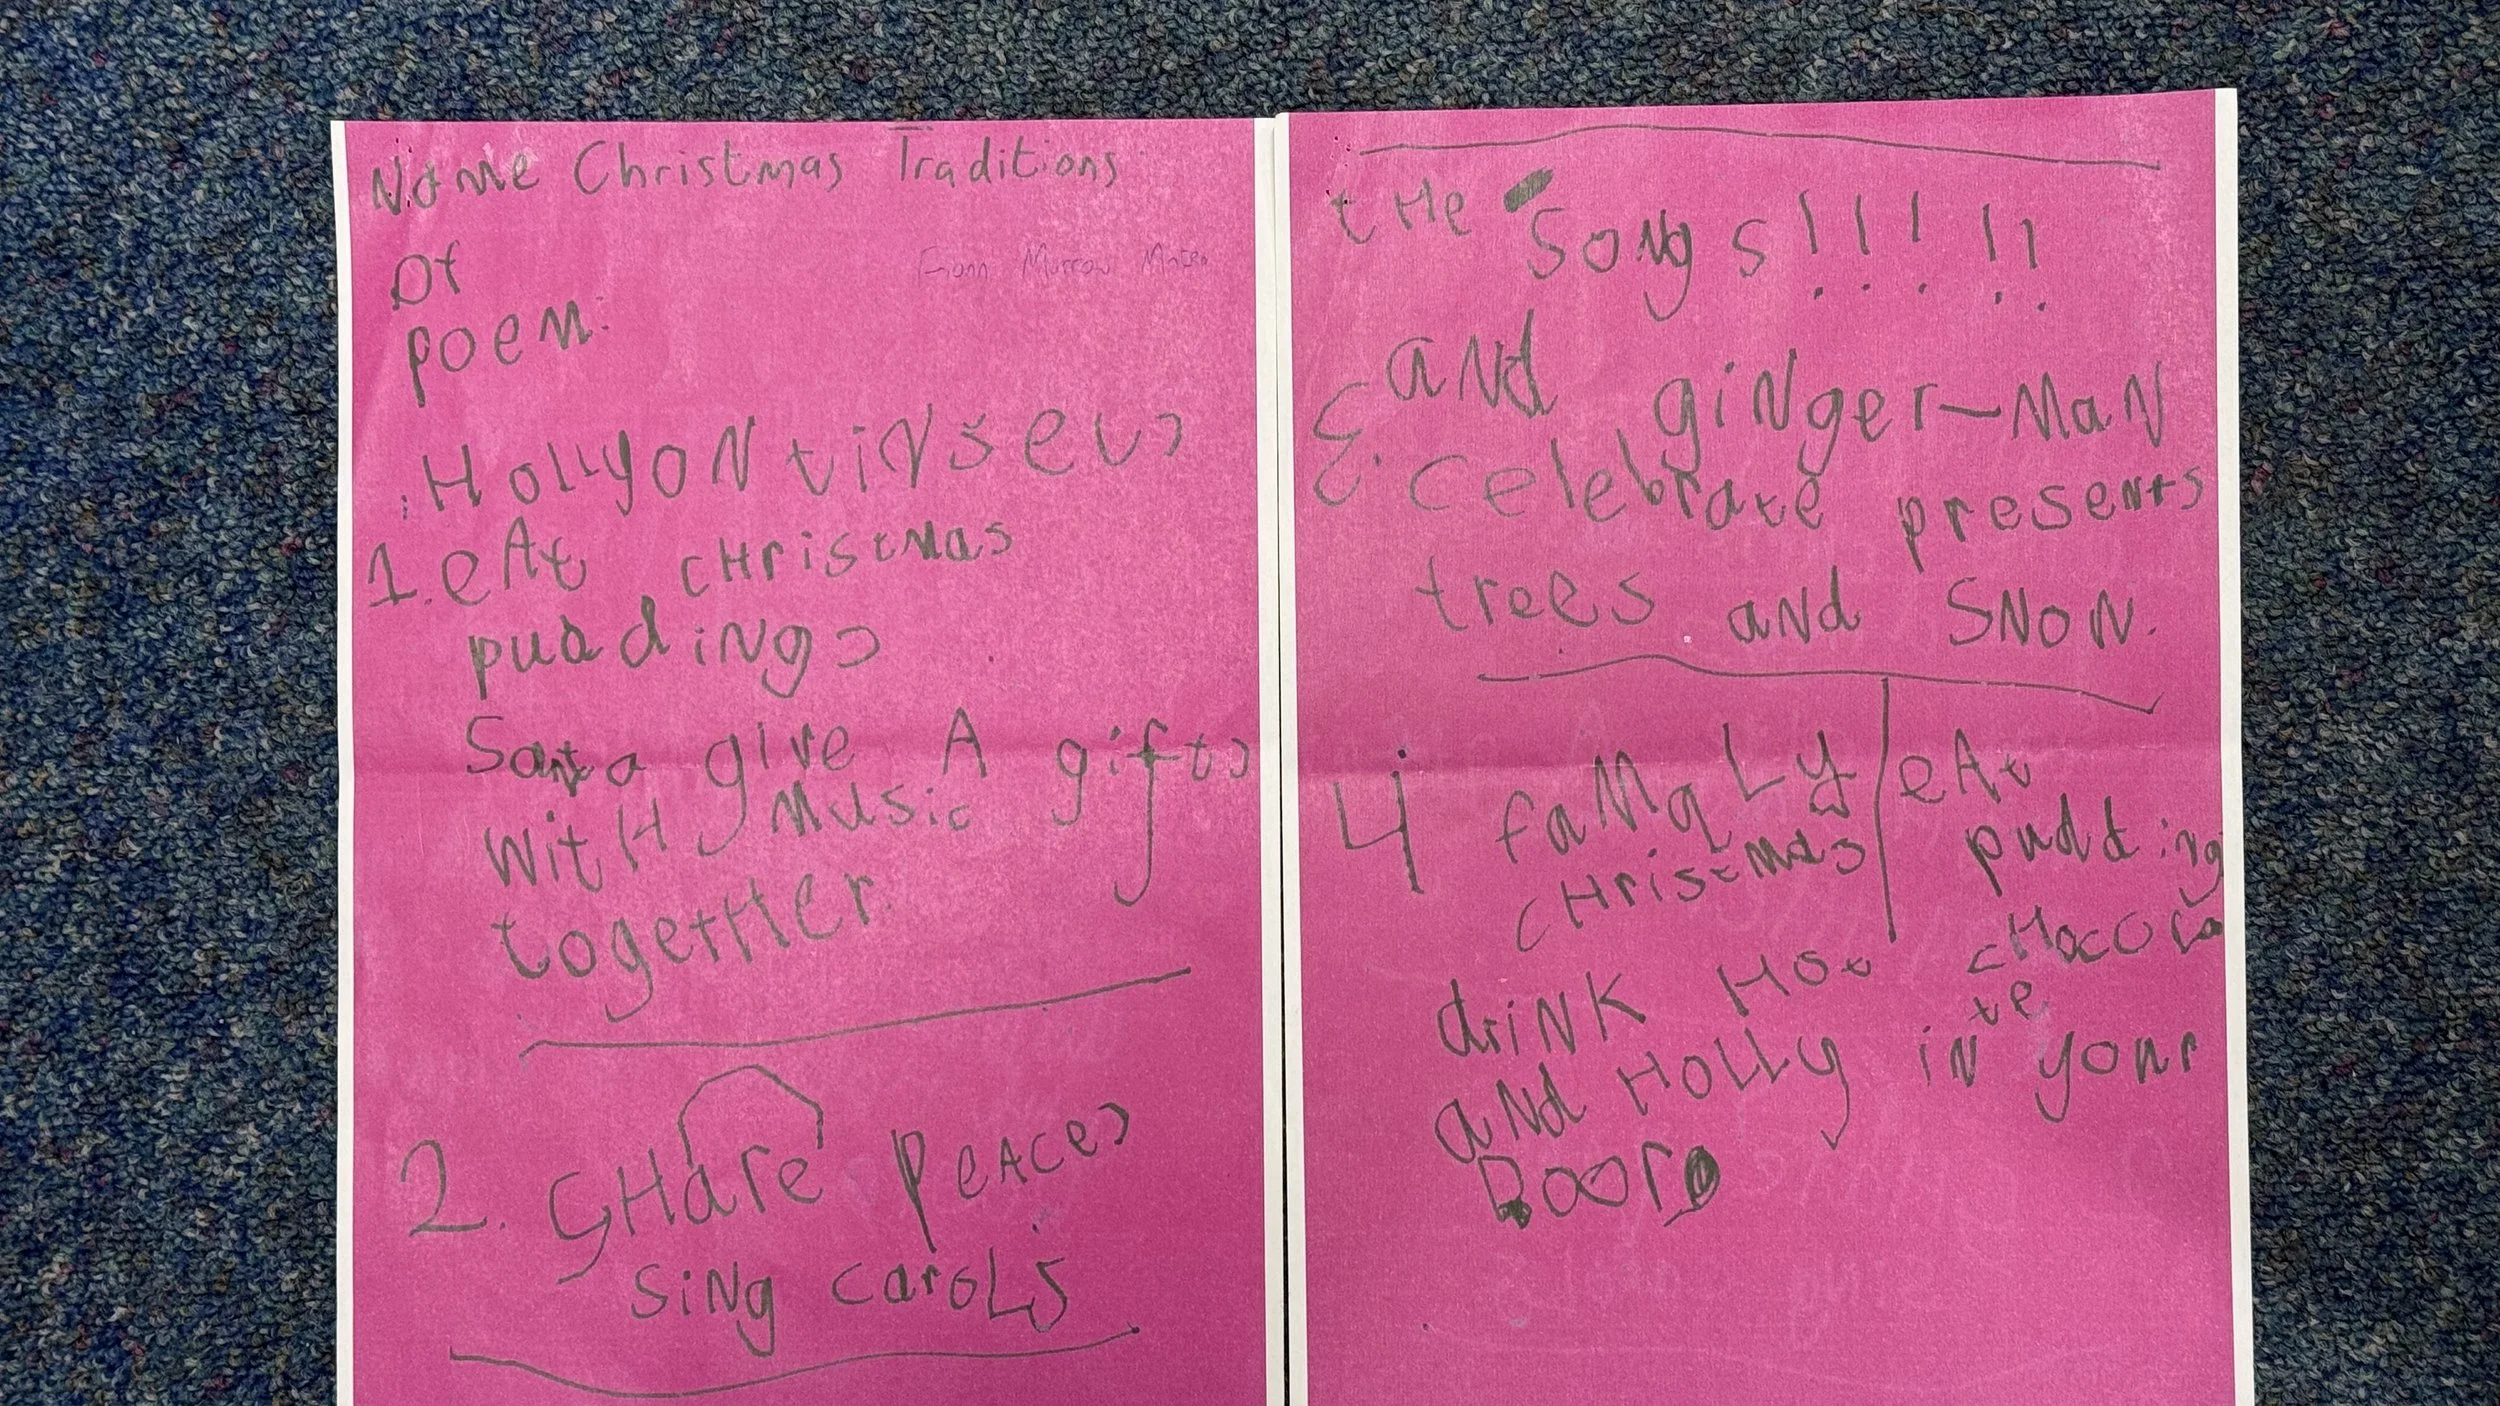 Name Christmas Traditions
Of
poem:
Fionn Morrow Mateo
HollyoN tiNSeL,
1. eAt cHristmas
puddiNg,
Santa give A gift,
witH Music
togetHer.
2. SHare PeACe,
SiNg CaroLS
tHe SoNgS!!!!!
aNd giNger-MaN
3. celebrate preseNts
trees and SNoW.
4 faMqLy eAt
cHristmas pudding
driNK Hot cHocoLa
te
aNd HoLLy iN your
Door